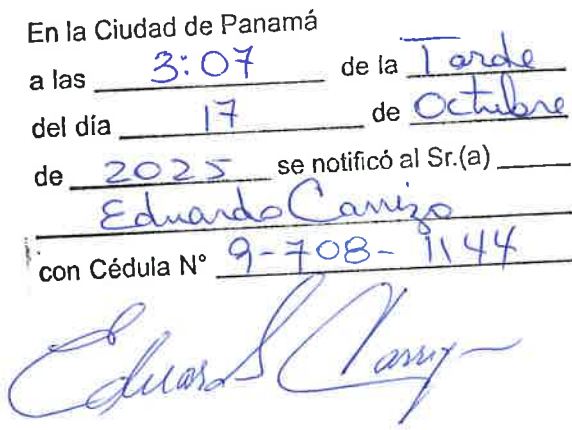 En la Ciudad de Panamá
a las 3:07 de la Tarde
del día 17 de Octubre
de 2025 se notificó al Sr.(a)
Eduardo Carrizo
con Cédula N° 9-708-1144
Eduardo Carrizo